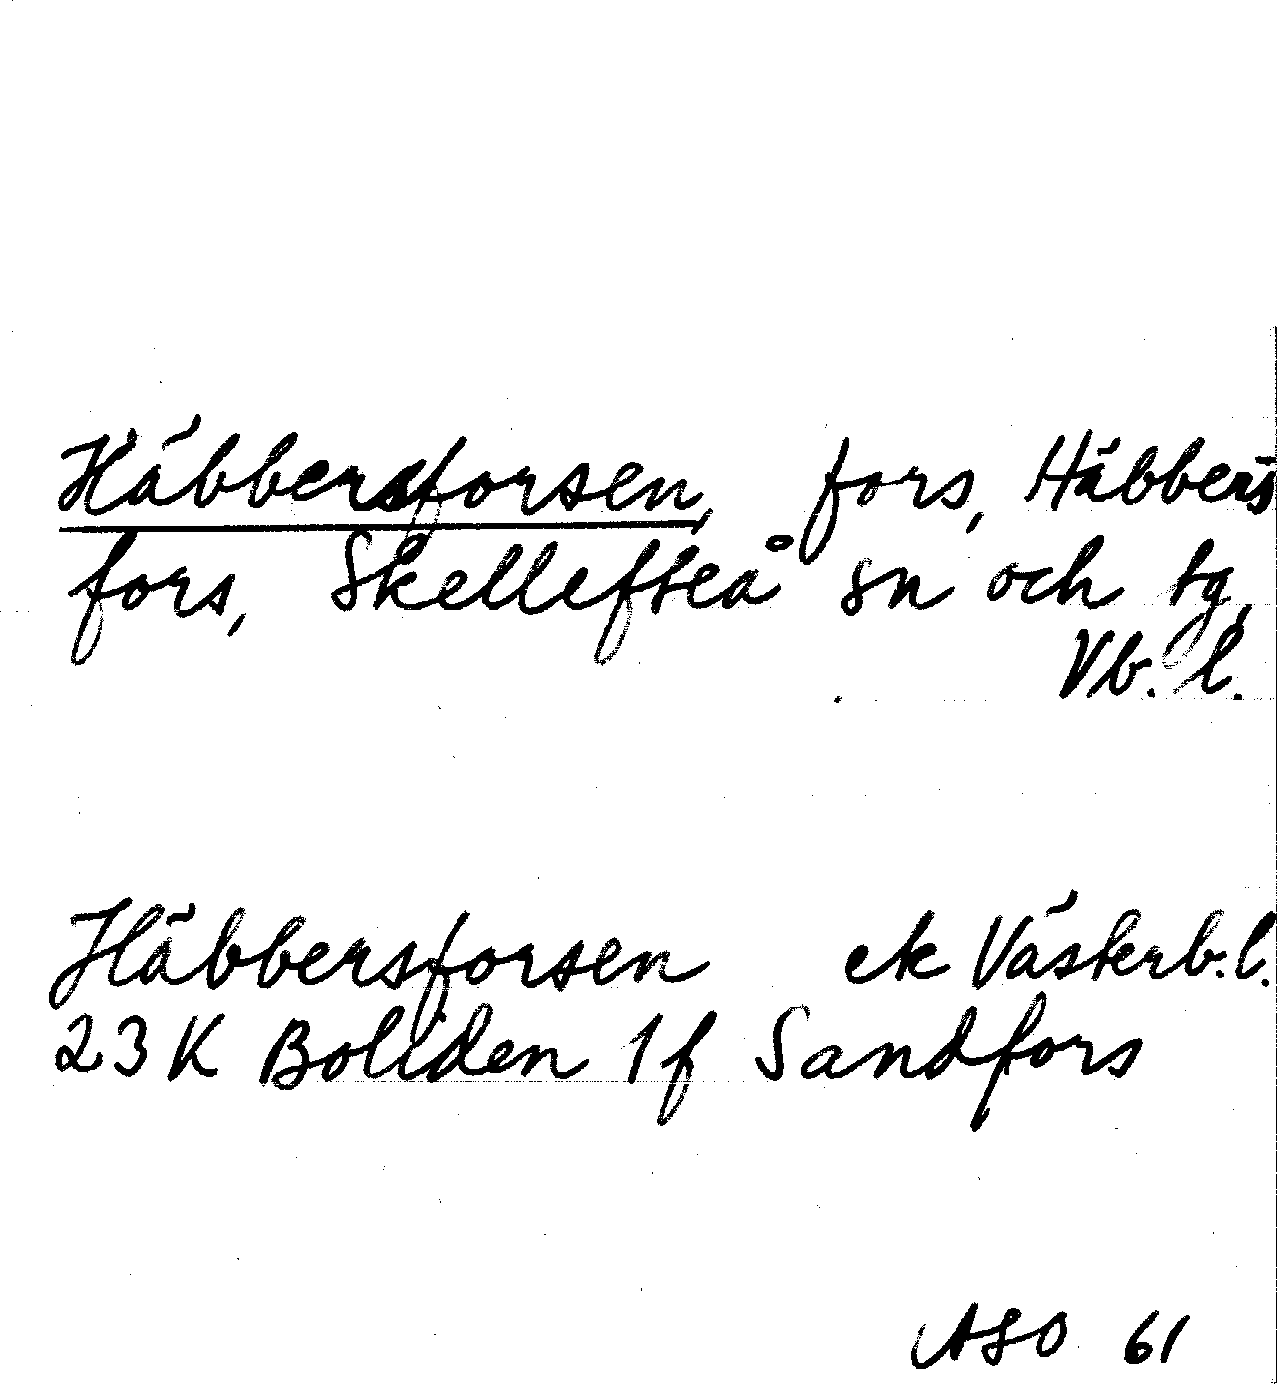 Häbbersforsen, fors, Häbbers-
fors, Skellefteå sn och tg,
Vb. l.
Häbbersforsen ek Västerb. l.
23 K Boliden 1 f Sandfors
ASO 61